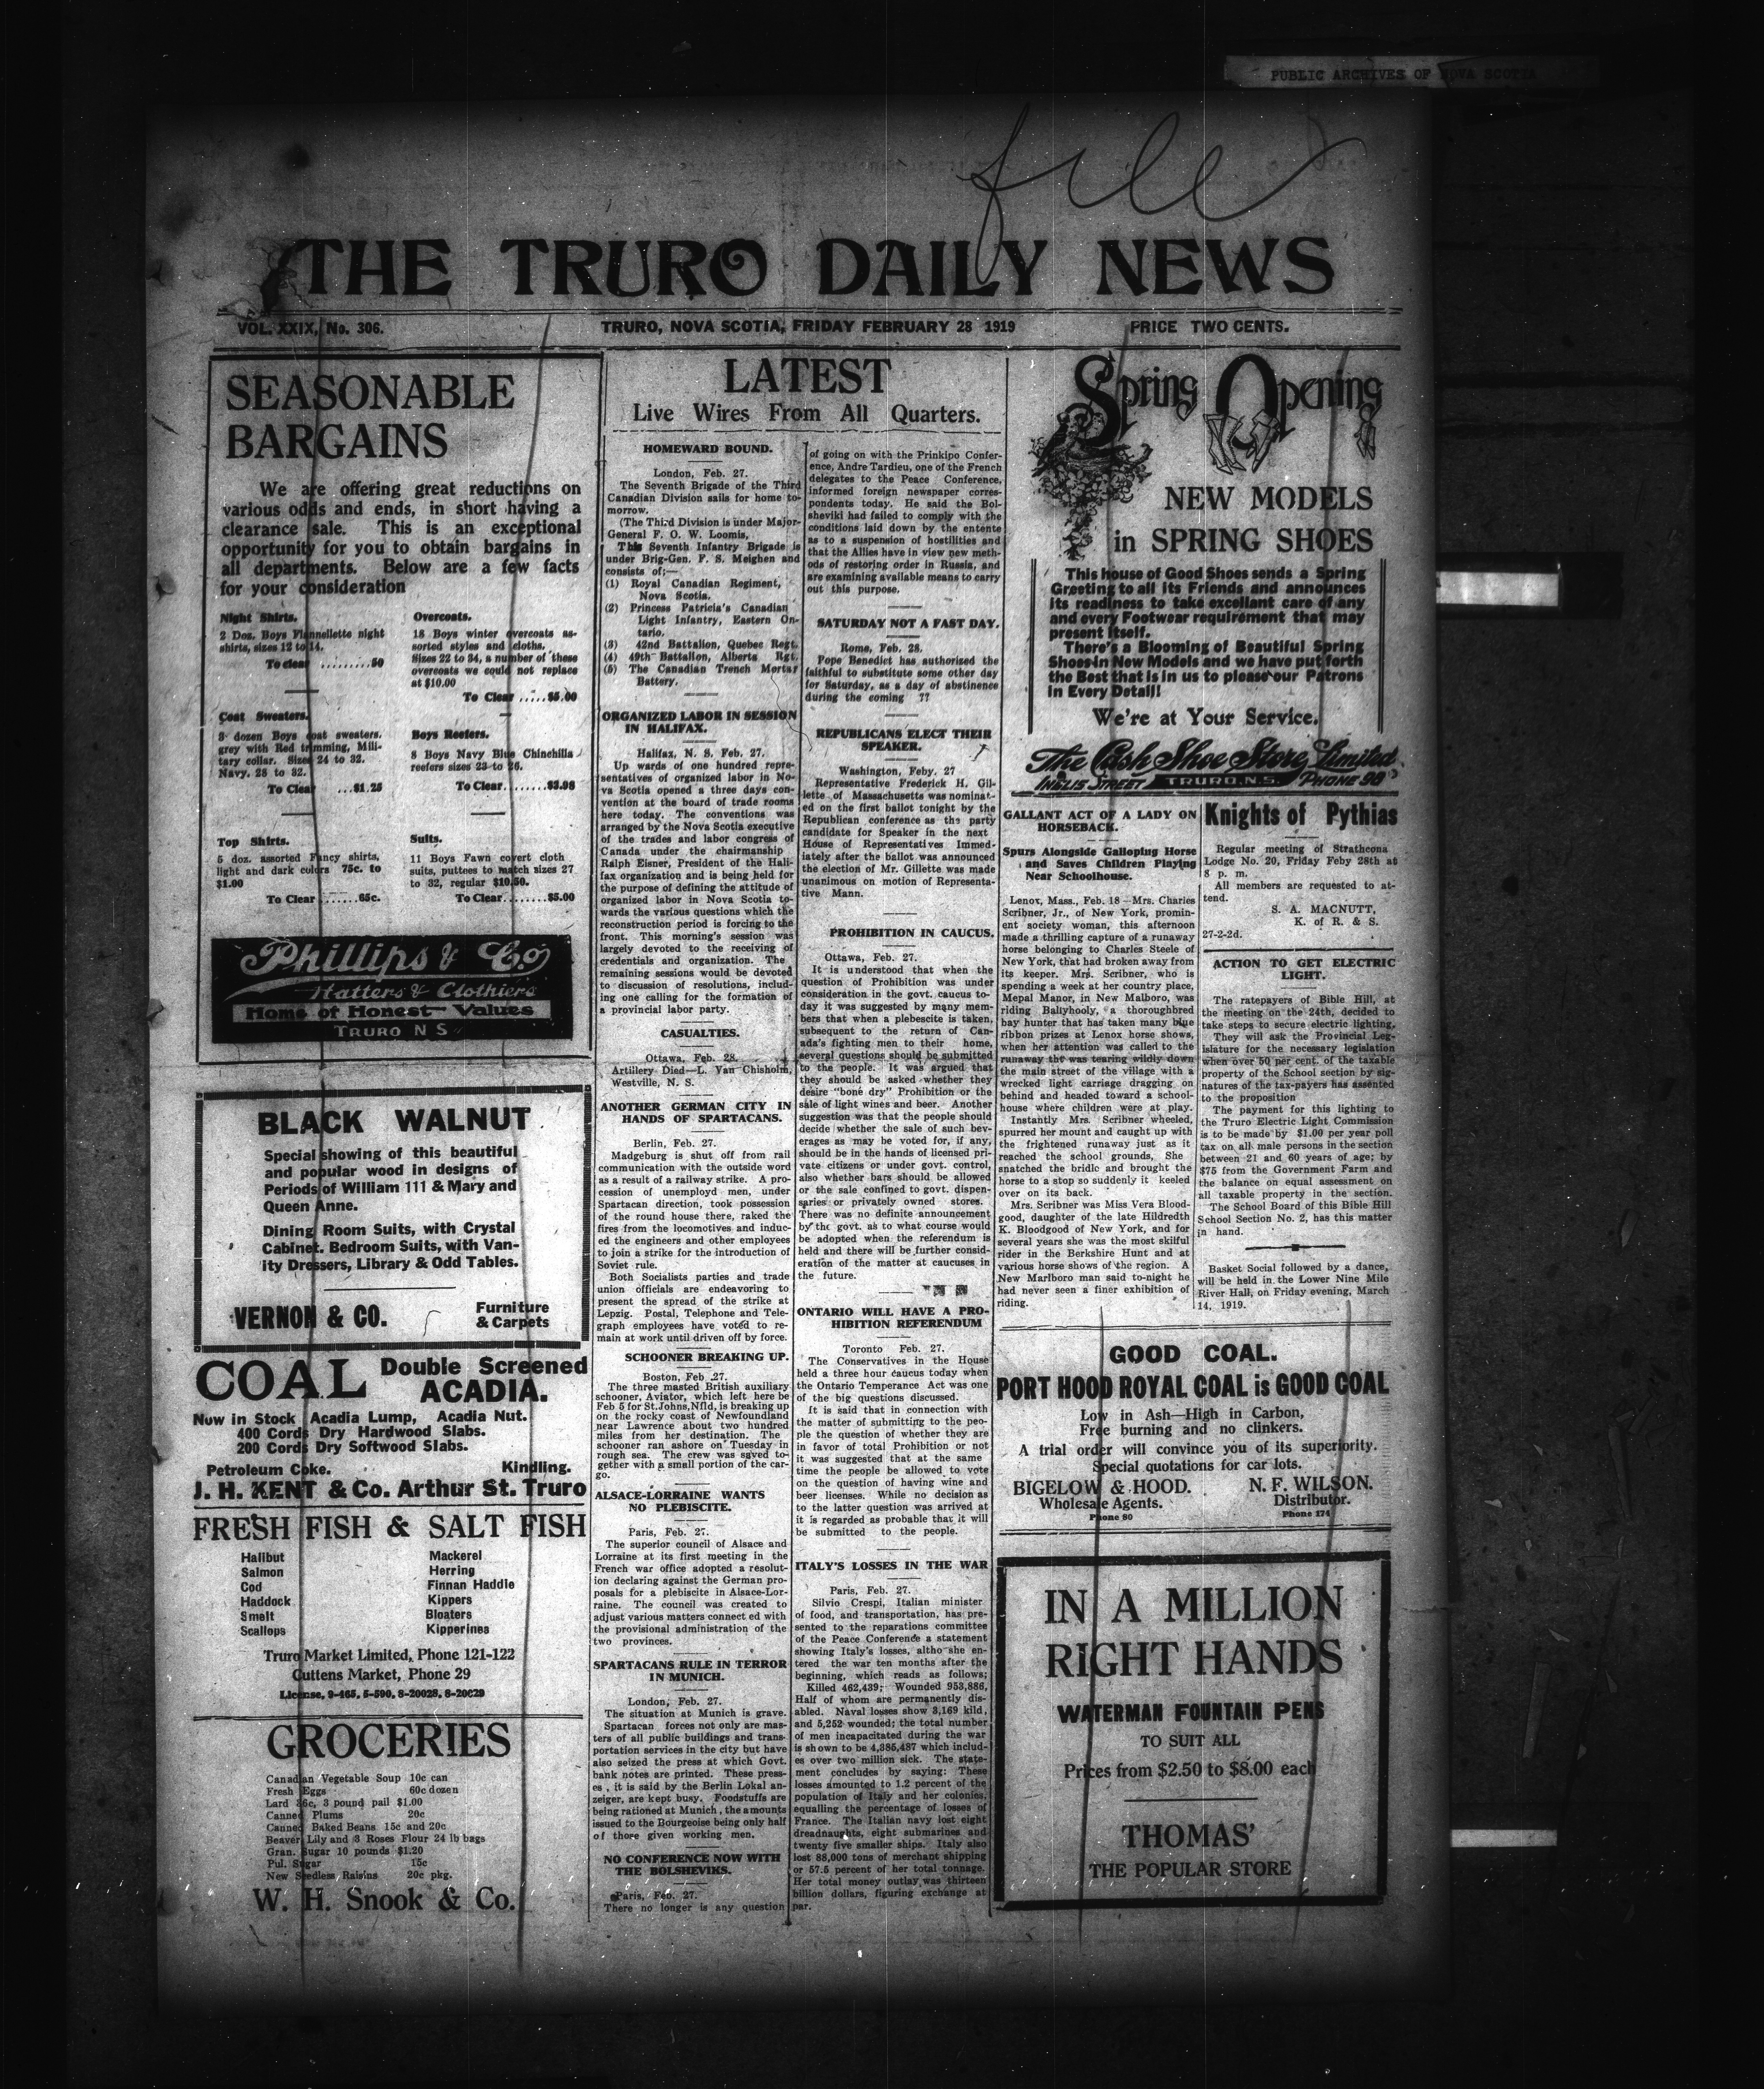 PUBLIC ARCHIVES OF NOVA SCOTIA
file
THE TRURO DAILY NEWS
VOL. XXIX, No. 306.
TRURO, NOVA SCOTIA, FRIDAY FEBRUARY 28 1919
PRICE TWO CENTS.
SEASONABLE
BARGAINS
We are offering great reductions on
various odds and ends, in short having a
clearance sale. This is an exceptional
opportunity for you to obtain bargains in
all departments. Below are a few facts
for your consideration
Night Shirts.
2 Doz. Boys Flannellette night
shirts, sizes 12 to 14.
To clear .........50
Coat Sweaters.
3 dozen Boys coat sweaters.
grey with Red trimming, Mili-
tary collar. Sizes 24 to 32.
Navy. 28 to 32.
To Clear ...$1.25
Top Shirts.
5 doz. assorted Fancy shirts,
light and dark colors 75c. to
$1.00
To Clear .......65c.
Overcoats.
18 Boys winter overcoats as-
sorted styles and cloths.
Sizes 22 to 34, a number of these
overcoats we could not replace
at $10.00
To Clear .....$5.00
Boys Reefers.
8 Boys Navy Blue Chinchilla
reefers sizes 23 to 26.
To Clear........$3.98
Suits.
11 Boys Fawn covert cloth
suits, puttees to match sizes 27
to 32, regular $10.50.
To Clear........$5.00
Phillips & Co
Hatters & Clothiers
Home of Honest Values
TRURO N S
BLACK WALNUT
Special showing of this beautiful
and popular wood in designs of
Periods of William 111 & Mary and
Queen Anne.
Dining Room Suits, with Crystal
Cabinet. Bedroom Suits, with Van-
ity Dressers, Library & Odd Tables.
VERNON & CO.
Furniture
& Carpets
COAL Double Screened
ACADIA.
Now in Stock Acadia Lump, Acadia Nut.
400 Cords Dry Hardwood Slabs.
200 Cords Dry Softwood Slabs.
Petroleum Coke. Kindling.
J. H. KENT & Co. Arthur St. Truro
FRESH FISH & SALT FISH
Halibut
Salmon
Cod
Haddock
Smelt
Scallops
Mackerel
Herring
Finnan Haddie
Kippers
Bloaters
Kipperines
Truro Market Limited, Phone 121-122
Cuttens Market, Phone 29
License, 9-465, 5-590, 8-20028, 8-20029
GROCERIES
Canadian Vegetable Soup 10c can
Fresh Eggs 60c dozen
Lard 36c, 3 pound pail $1.00
Canned Plums 20c
Canned Baked Beans 15c and 20c
Beaver Lily and 3 Roses Flour 24 lb bags
Gran. Sugar 10 pounds $1.20
Pul. Sugar 15c
New Seedless Raisins 20c pkg.
W. H. Snook & Co.
LATEST
Live Wires From All Quarters.
HOMEWARD BOUND.
London, Feb. 27.
The Seventh Brigade of the Third
Canadian Division sails for home to-
morrow.
(The Third Division is under Major-
General F. O. W. Loomis,
This Seventh Infantry Brigade is
under Brig-Gen. F. S. Meighen and
consists of;—
(1) Royal Canadian Regiment,
Nova Scotia.
(2) Princess Patricia's Canadian
Light Infantry, Eastern On-
tario.
(3) 42nd Battalion, Quebec Regt.
(4) 49th Battalion, Alberta Rgt.
(5) The Canadian Trench Mortar
Battery.
ORGANIZED LABOR IN SESSION
IN HALIFAX.
Halifax, N. S. Feb. 27.
Up wards of one hundred repre-
sentatives of organized labor in No-
va Scotia opened a three days con-
vention at the board of trade rooms
here today. The conventions was
arranged by the Nova Scotia executive
of the trades and labor congress of
Canada under the chairmanship
Ralph Eisner, President of the Hali-
fax organization and is being held for
the purpose of defining the attitude of
organized labor in Nova Scotia to-
wards the various questions which the
reconstruction period is forcing to the
front. This morning's session was
largely devoted to the receiving of
credentials and organization. The
remaining sessions would be devoted
to discussion of resolutions, includ-
ing one calling for the formation of
a provincial labor party.
CASUALTIES.
Ottawa, Feb. 28.
Artillery Died—L. Van Chisholm,
Westville, N. S.
ANOTHER GERMAN CITY IN
HANDS OF SPARTACANS.
Berlin, Feb. 27.
Madgeburg is shut off from rail
communication with the outside word
as a result of a railway strike. A pro-
cession of unemployd men, under
Spartacan direction, took possession
of the round house there, raked the
fires from the locomotives and induc-
ed the engineers and other employees
to join a strike for the introduction of
Soviet rule.
Both Socialists parties and trade
union officials are endeavoring to
present the spread of the strike at
Lepzig. Postal, Telephone and Tele-
graph employees have voted to re-
main at work until driven off by force.
SCHOONER BREAKING UP.
Boston, Feb 27.
The three masted British auxiliary
schooner, Aviator, which left here be
Feb 5 for St.Johns,Nfld, is breaking up
on the rocky coast of Newfoundland
near Lawrence about two hundred
miles from her destination. The
schooner ran ashore on Tuesday in
rough sea. The crew was saved to-
gether with a small portion of the car-
go.
ALSACE-LORRAINE WANTS
NO PLEBISCITE.
Paris, Feb. 27.
The superior council of Alsace and
Lorraine at its first meeting in the
French war office adopted a resolut-
ion declaring against the German pro-
posals for a plebiscite in Alsace-Lor-
raine. The council was created to
adjust various matters connect ed with
the provisional administration of the
two provinces.
SPARTACANS RULE IN TERROR
IN MUNICH.
London, Feb. 27.
The situation at Munich is grave.
Spartacan forces not only are mas-
ters of all public buildings and trans-
portation services in the city but have
also seized the press at which Govt.
bank notes are printed. These press-
es , it is said by the Berlin Lokal an-
zeiger, are kept busy. Foodstuffs are
being rationed at Munich , the amounts
issued to the Bourgeoise being only half
of those given working men.
NO CONFERENCE NOW WITH
THE BOLSHEVIKS.
Paris, Feb. 27.
There no longer is any question
of going on with the Prinkipo Confer-
ence, Andre Tardieu, one of the French
delegates to the Peace Conference,
informed foreign newspaper corres-
pondents today. He said the Bol-
sheviki had failed to comply with the
conditions laid down by the entente
as to a suspension of hostilities and
that the Allies have in view new meth-
ods of restoring order in Russia, and
are examining available means to carry
out this purpose.
SATURDAY NOT A FAST DAY.
Rome, Feb. 28.
Pope Benedict has authorized the
faithful to substitute some other day
for Saturday, as a day of abstinence
during the coming ??
REPUBLICANS ELECT THEIR
SPEAKER.
Washington, Feby. 27
Representative Frederick H. Gil-
lette of Massachusetts was nominat-
ed on the first ballot tonight by the
Republican conference as the party
candidate for Speaker in the next
House of Representatives Immed-
iately after the ballot was announced
the election of Mr. Gillette was made
unanimous on motion of Representa-
tive Mann.
PROHIBITION IN CAUCUS.
Ottawa, Feb. 27.
It is understood that when the
question of Prohibition was under
consideration in the govt. caucus to-
day it was suggested by many mem-
bers that when a plebescite is taken,
subsequent to the return of Can-
ada's fighting men to their home,
several questions should be submitted
to the people. It was argued that
they should be asked whether they
desire "bone dry" Prohibition or the
sale of light wines and beer. Another
suggestion was that the people should
decide whether the sale of such bev-
erages as may be voted for, if any,
should be in the hands of licensed pri-
vate citizens or under govt. control,
also whether bars should be allowed
or the sale confined to govt. dispen-
saries or privately owned stores.
There was no definite announcement
by the govt. as to what course would
be adopted when the referendum is
held and there will be further consid-
eration of the matter at caucuses in
the future.
ONTARIO WILL HAVE A PRO-
HIBITION REFERENDUM
Toronto Feb. 27.
The Conservatives in the House
held a three hour caucus today when
the Ontario Temperance Act was one
of the big questions discussed.
It is said that in connection with
the matter of submitting to the peo-
ple the question of whether they are
in favor of total Prohibition or not
it was suggested that at the same
time the people be allowed to vote
on the question of having wine and
beer licenses. While no decision as
to the latter question was arrived at
it is regarded as probable that it will
be submitted to the people.
ITALY'S LOSSES IN THE WAR
Paris, Feb. 27.
Silvio Crespi, Italian minister
of food, and transportation, has pre-
sented to the reparations committee
of the Peace Conference a statement
showing Italy's losses, altho she en-
tered the war ten months after the
beginning, which reads as follows;
Killed 462,439; Wounded 953,886,
Half of whom are permanently dis-
abled. Naval losses show 3,169 kild,
and 5,252 wounded; the total number
of men incapacitated during the war
is shown to be 4,386,487 which includ-
es over two million sick. The state-
ment concludes by saying: These
losses amounted to 1.2 percent of the
population of Italy and her colonies,
equalling the percentage of losses of
France. The Italian navy lost eight
dreadnaughts, eight submarines and
twenty five smaller ships. Italy also
lost 88,000 tons of merchant shipping
or 57.5 percent of her total tonnage.
Her total money outlay was thirteen
billion dollars, figuring exchange at
par.
Spring Opening
NEW MODELS
in SPRING SHOES
This house of Good Shoes sends a Spring
Greeting to all its Friends and announces
its readiness to take excellant care of any
and every Footwear requirement that may
present itself.
There's a Blooming of Beautiful Spring
Shoes in New Models and we have put forth
the Best that is in us to please our Patrons
in Every Detail!
We're at Your Service.
The Cash Shoe Store, Limited
INGLIS STREET TRURO, N.S. PHONE 98
GALLANT ACT OF A LADY ON
HORSEBACK.
Spurs Alongside Galloping Horse
and Saves Children Playing
Near Schoolhouse.
Lenox, Mass., Feb. 18—Mrs. Charles
Scribner, Jr., of New York, promin-
ent society woman, this afternoon
made a thrilling capture of a runaway
horse belonging to Charles Steele of
New York, that had broken away from
its keeper. Mrs. Scribner, who is
spending a week at her country place,
Mepal Manor, in New Malboro, was
riding Baliyhooly, a thoroughbred
bay hunter that has taken many blue
ribbon prizes at Lenox horse shows,
when her attention was called to the
runaway tht was tearing wildly down
the main street of the village with a
wrecked light carriage dragging on
behind and headed toward a school-
house where children were at play.
Instantly Mrs. Scribner wheeled,
spurred her mount and caught up with
the frightened runaway just as it
reached the school grounds, She
snatched the bridle and brought the
horse to a stop so suddenly it keeled
over on its back.
Mrs. Scribner was Miss Vera Blood-
good, daughter of the late Hildredth
K. Bloodgood of New York, and for
several years she was the most skilful
rider in the Berkshire Hunt and at
various horse shows of the region. A
New Marlboro man said to-night he
had never seen a finer exhibition of
riding.
Knights of Pythias
Regular meeting of Strathcona
Lodge No. 20, Friday Feby 28th at
8 p. m.
All members are requested to at-
tend.
S. A. MACNUTT,
K. of R. & S.
27-2-2d.
ACTION TO GET ELECTRIC
LIGHT.
The ratepayers of Bible Hill, at
the meeting on the 24th, decided to
take steps to secure electric lighting.
They will ask the Provincial Leg-
islature for the necessary legislation
when over 50 per cent. of the taxable
property of the School section by sig-
natures of the tax-payers has assented
to the proposition
The payment for this lighting to
the Truro Electric Light Commission
is to be made by $1.00 per year poll
tax on all male persons in the section
between 21 and 60 years of age; by
$75 from the Government Farm and
the balance on equal assessment on
all taxable property in the section.
The School Board of this Bible Hill
School Section No. 2, has this matter
in hand.
Basket Social followed by a dance,
will be held in the Lower Nine Mile
River Hall, on Friday evening, March
14, 1919.
GOOD COAL.
PORT HOOD ROYAL COAL is GOOD COAL
Low in Ash—High in Carbon,
Free burning and no clinkers.
A trial order will convince you of its superiority.
Special quotations for car lots.
BIGELOW & HOOD.
Wholesale Agents.
Phone 80
N. F. WILSON.
Distributor.
Phone 174
IN A MILLION
RIGHT HANDS
WATERMAN FOUNTAIN PENS
TO SUIT ALL
Prices from $2.50 to $8.00 each
THOMAS'
THE POPULAR STORE